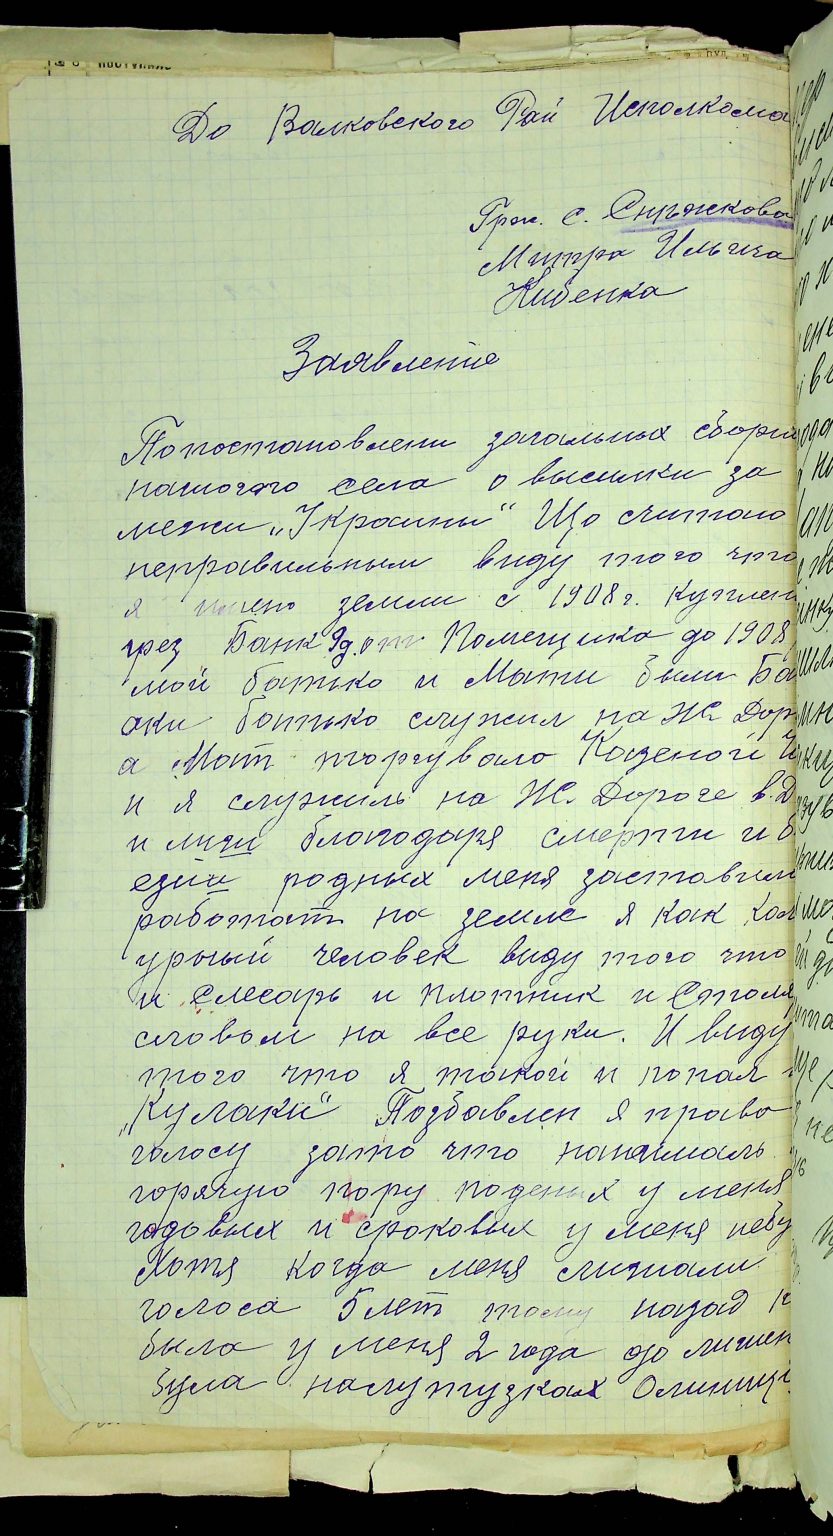 До Валковского Рай Исполкома
Грж. с. Снѣжкова
Митра Ильича
Кибенка
Заявление
Попостановлени загальных сборів
нашого села о висилки за
межи „Украины“ Що считаю
неправильным виду того что
я имею земли с 1908 г. куплен
чрез Банк 9д. от Помещика до 1908
мой батько и Мати были Ба
аки батько служил на Ж. Дор
а Мат торгувала Казеной
и я служиль на Ж. Дороге в. Д
и лиш благодаря смерти и б
езіи родных меня заставили
работат на земле я как кол
урный человек виду того что
и Слесарь и плотник и Столя
словом на все руки. И виду
того что я такой и попал
„Кулаки“ Позбавлен я права
голосу зато что нанималь
горячую пору поденых у меня
годовых и сроковых у меня небу
Хотя когда меня лишали
голоса 5 лет тому назад
была у меня 2 года до лишен
була